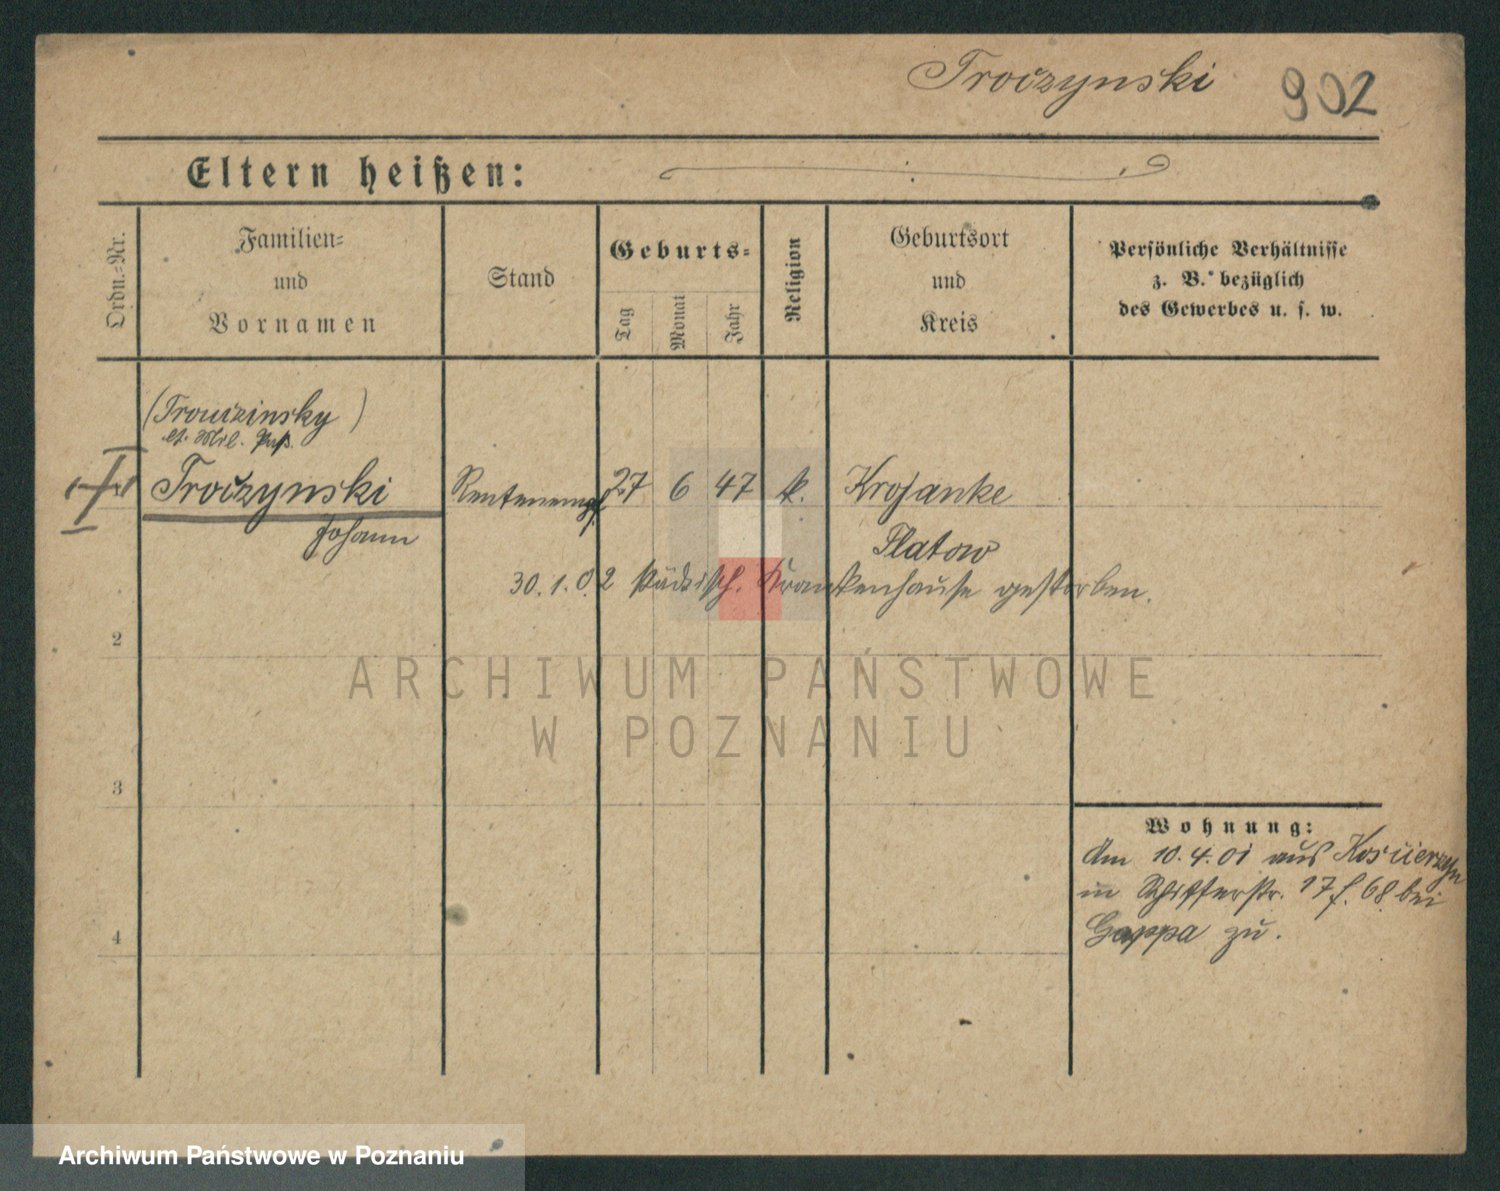 Troczynski 902
Eltern heißen:
Ordn.-Nr.
Familien-
und
Vornamen
Stand
Geburts-
Tag
Monat
Jahr
Religion
Geburtsort
und
Kreis
Persönliche Verhältnisse
z. B. bezüglich
des Gewerbes u. s. w.
(Trouczinsky)
lt. Mil. Paß.
Troczynski
Johann
Rentenempf.
27 6 47 k.
Krojanke
Flatow
30.1.02 städtisch. Krankenhause gestorben.
2
3
4
Wohnung:
Am 10.4.01 aus
in 17 f. 68 bei
Gappa zu.
ARCHIWUM PAŃSTWOWE
W POZNANIU
Archiwum Państwowe w Poznaniu